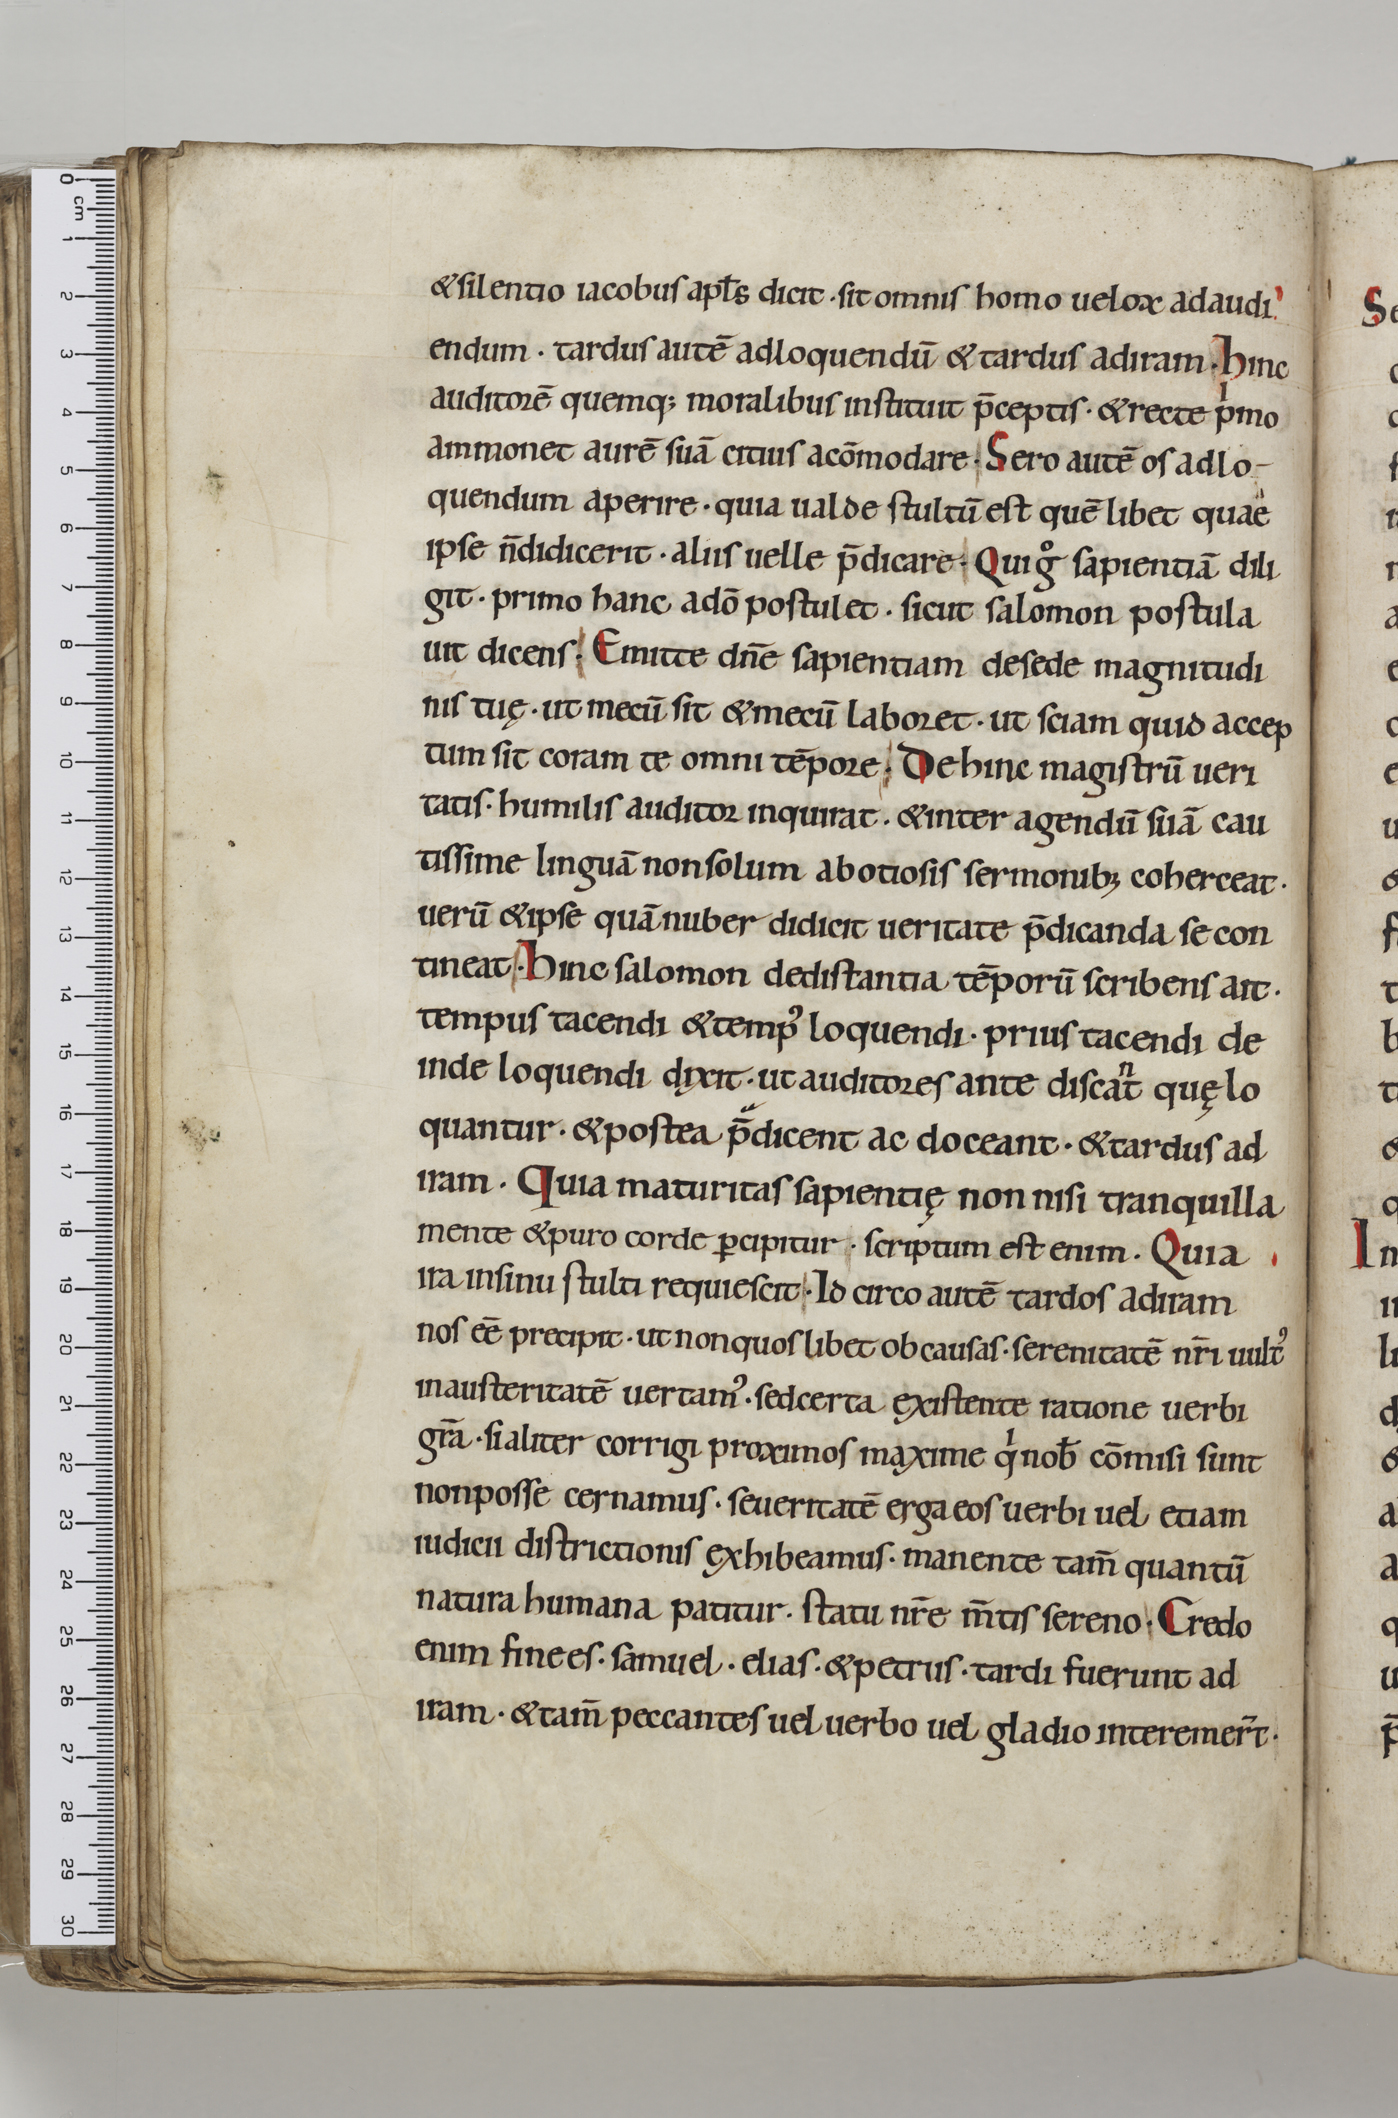 &silentio iacobus apl̄s dicit · sit omnis homo uelox adaudi
endum · tardus autē adloquendū & tardus adiram · Hinc
auditorē quemq; moralibus instituit p̄ceptis · &recte pͥmo
ammonet aurē suā citius acōmodare · Sero autē os adlo-
quendum aperire · quia ualde stultū est quē libet quae
ipse n̄didicerit · aliis uelle p̄dicare · Qui gͦ sapientiā dili
git · primo hanc adō postulet · sicut salomon postula
uit dicens · Emitte dn̄e sapientiam desede magnitudi
nis tuę · ut mecū sit &mecū laboret · ut sciam quid accep
tum sit coram te omni tēpore · Dehinc magistrū ueri
tatis · humilis auditor inquirat · &inter agendū suā cau
tissime linguā nonsolum abotiosis sermonib; coherceat ·
uerū &ipse quā nuber didicit ueritate p̄dicanda se con
tineat · Hinc salomon dedistantia tēporū scribens ait ·
tempus tacendi &temp᾽ loquendi · prius tacendi de
inde loquendi dixit · ut auditores ante discaⁿt quę lo
quantur · &postea p̄dicent ac doceant · &tardus ad
iram · Quia maturitas sapientię non nisi tranquilla
mente &puro corde ꝑcipitur · scriptum est enim · Quia
ira insinu stulti requiescit · Id circo autē tardos adiram
nos eē precipit · ut nonquoslibet ob causas · serenitatē nr̄i uult᾽
inausteritatē uertam᾽ · sedcerta ęxistente ratione uerbi
gr̄a · sialiter corrigi proximos mąxime qͥ nob̄ cōmisi sunt
nonposse cernamus · seueritatē erga eos uerbi uel etiam
iudicii districtionis ęxhibeamus · manente tam̄ quantū
natura humana patitur · statu nr̄e m̄tis sereno · Credo
enim finees · samuel · elias · &petrus · tardi fuerunt ad
iram · &tam̄ peccantes uel uerbo uel gladio interemer̄t ·